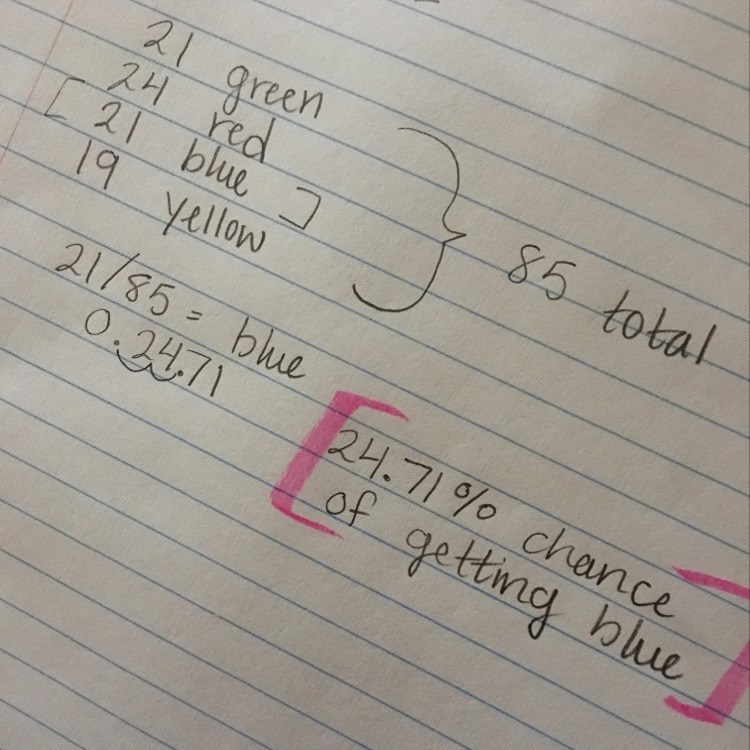 21 green
24 red
[ 21 blue ]
19 yellow
85 total
21/85 = blue
0.24.71
[ 24.71% chance
of getting blue ]